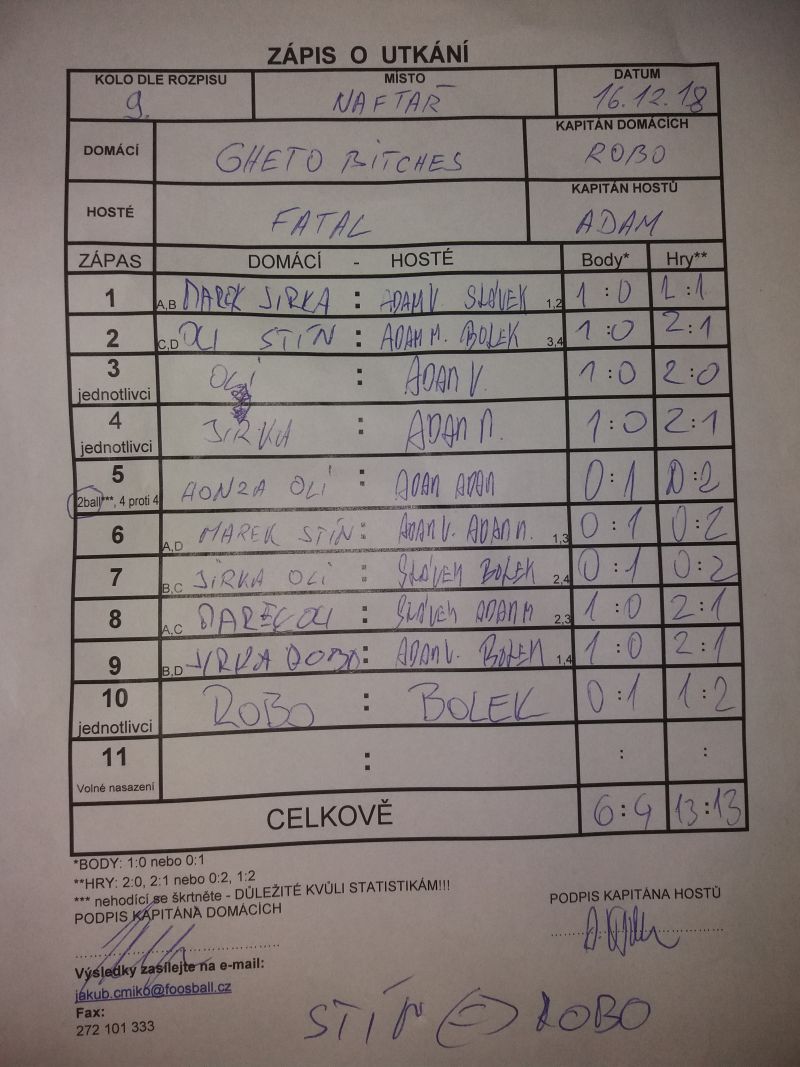 ZÁPIS O UTKÁNÍ
KOLO DLE ROZPISU MÍSTO DATUM
9. NAFTAŘ 16.12.18
DOMÁCÍ GHETO BITCHES KAPITÁN DOMÁCÍCH
ROBO
HOSTÉ FATAL KAPITÁN HOSTŮ
ADAM
ZÁPAS DOMÁCÍ - HOSTÉ Body* Hry**
1 A,B MAREK JIRKA : ADAM V. SLÁVEK 1,2 1:0 2:1
2 C,D OLI STÍN : ADAM M. BOLEK 3,4 1:0 2:1
3 jednotlivci OLI : ADAM V. 1:0 2:0
4 jednotlivci JIRKA : ADAM M. 1:0 2:1
5 2ball***, 4 proti 4 HONZA OLI : ADAM ADAM 0:1 0:2
6 A,D MAREK STÍN : ADAM V. ADAM M. 1,3 0:1 0:2
7 B,C JIRKA OLI : SLÁVEK BOLEK 2,4 0:1 0:2
8 A,C MAREK OLI : SLÁVEK ADAM M 2,3 1:0 2:1
9 B,D JIRKA ROBO : ADAM V. BOLEK 1,4 1:0 2:1
10 jednotlivci ROBO : BOLEK 0:1 1:2
11 Volné nasazení : : :
CELKOVĚ 6:4 13:13
*BODY: 1:0 nebo 0:1
**HRY: 2:0, 2:1 nebo 0:2, 1:2
*** nehodící se škrtněte - DŮLEŽITÉ KVŮLI STATISTIKÁM!!!
PODPIS KAPITÁNA DOMÁCÍCH PODPIS KAPITÁNA HOSTŮ
Výsledky zasílejte na e-mail:
jakub.cmiko@foosball.cz
Fax:
272 101 333
STÍN (=) ROBO